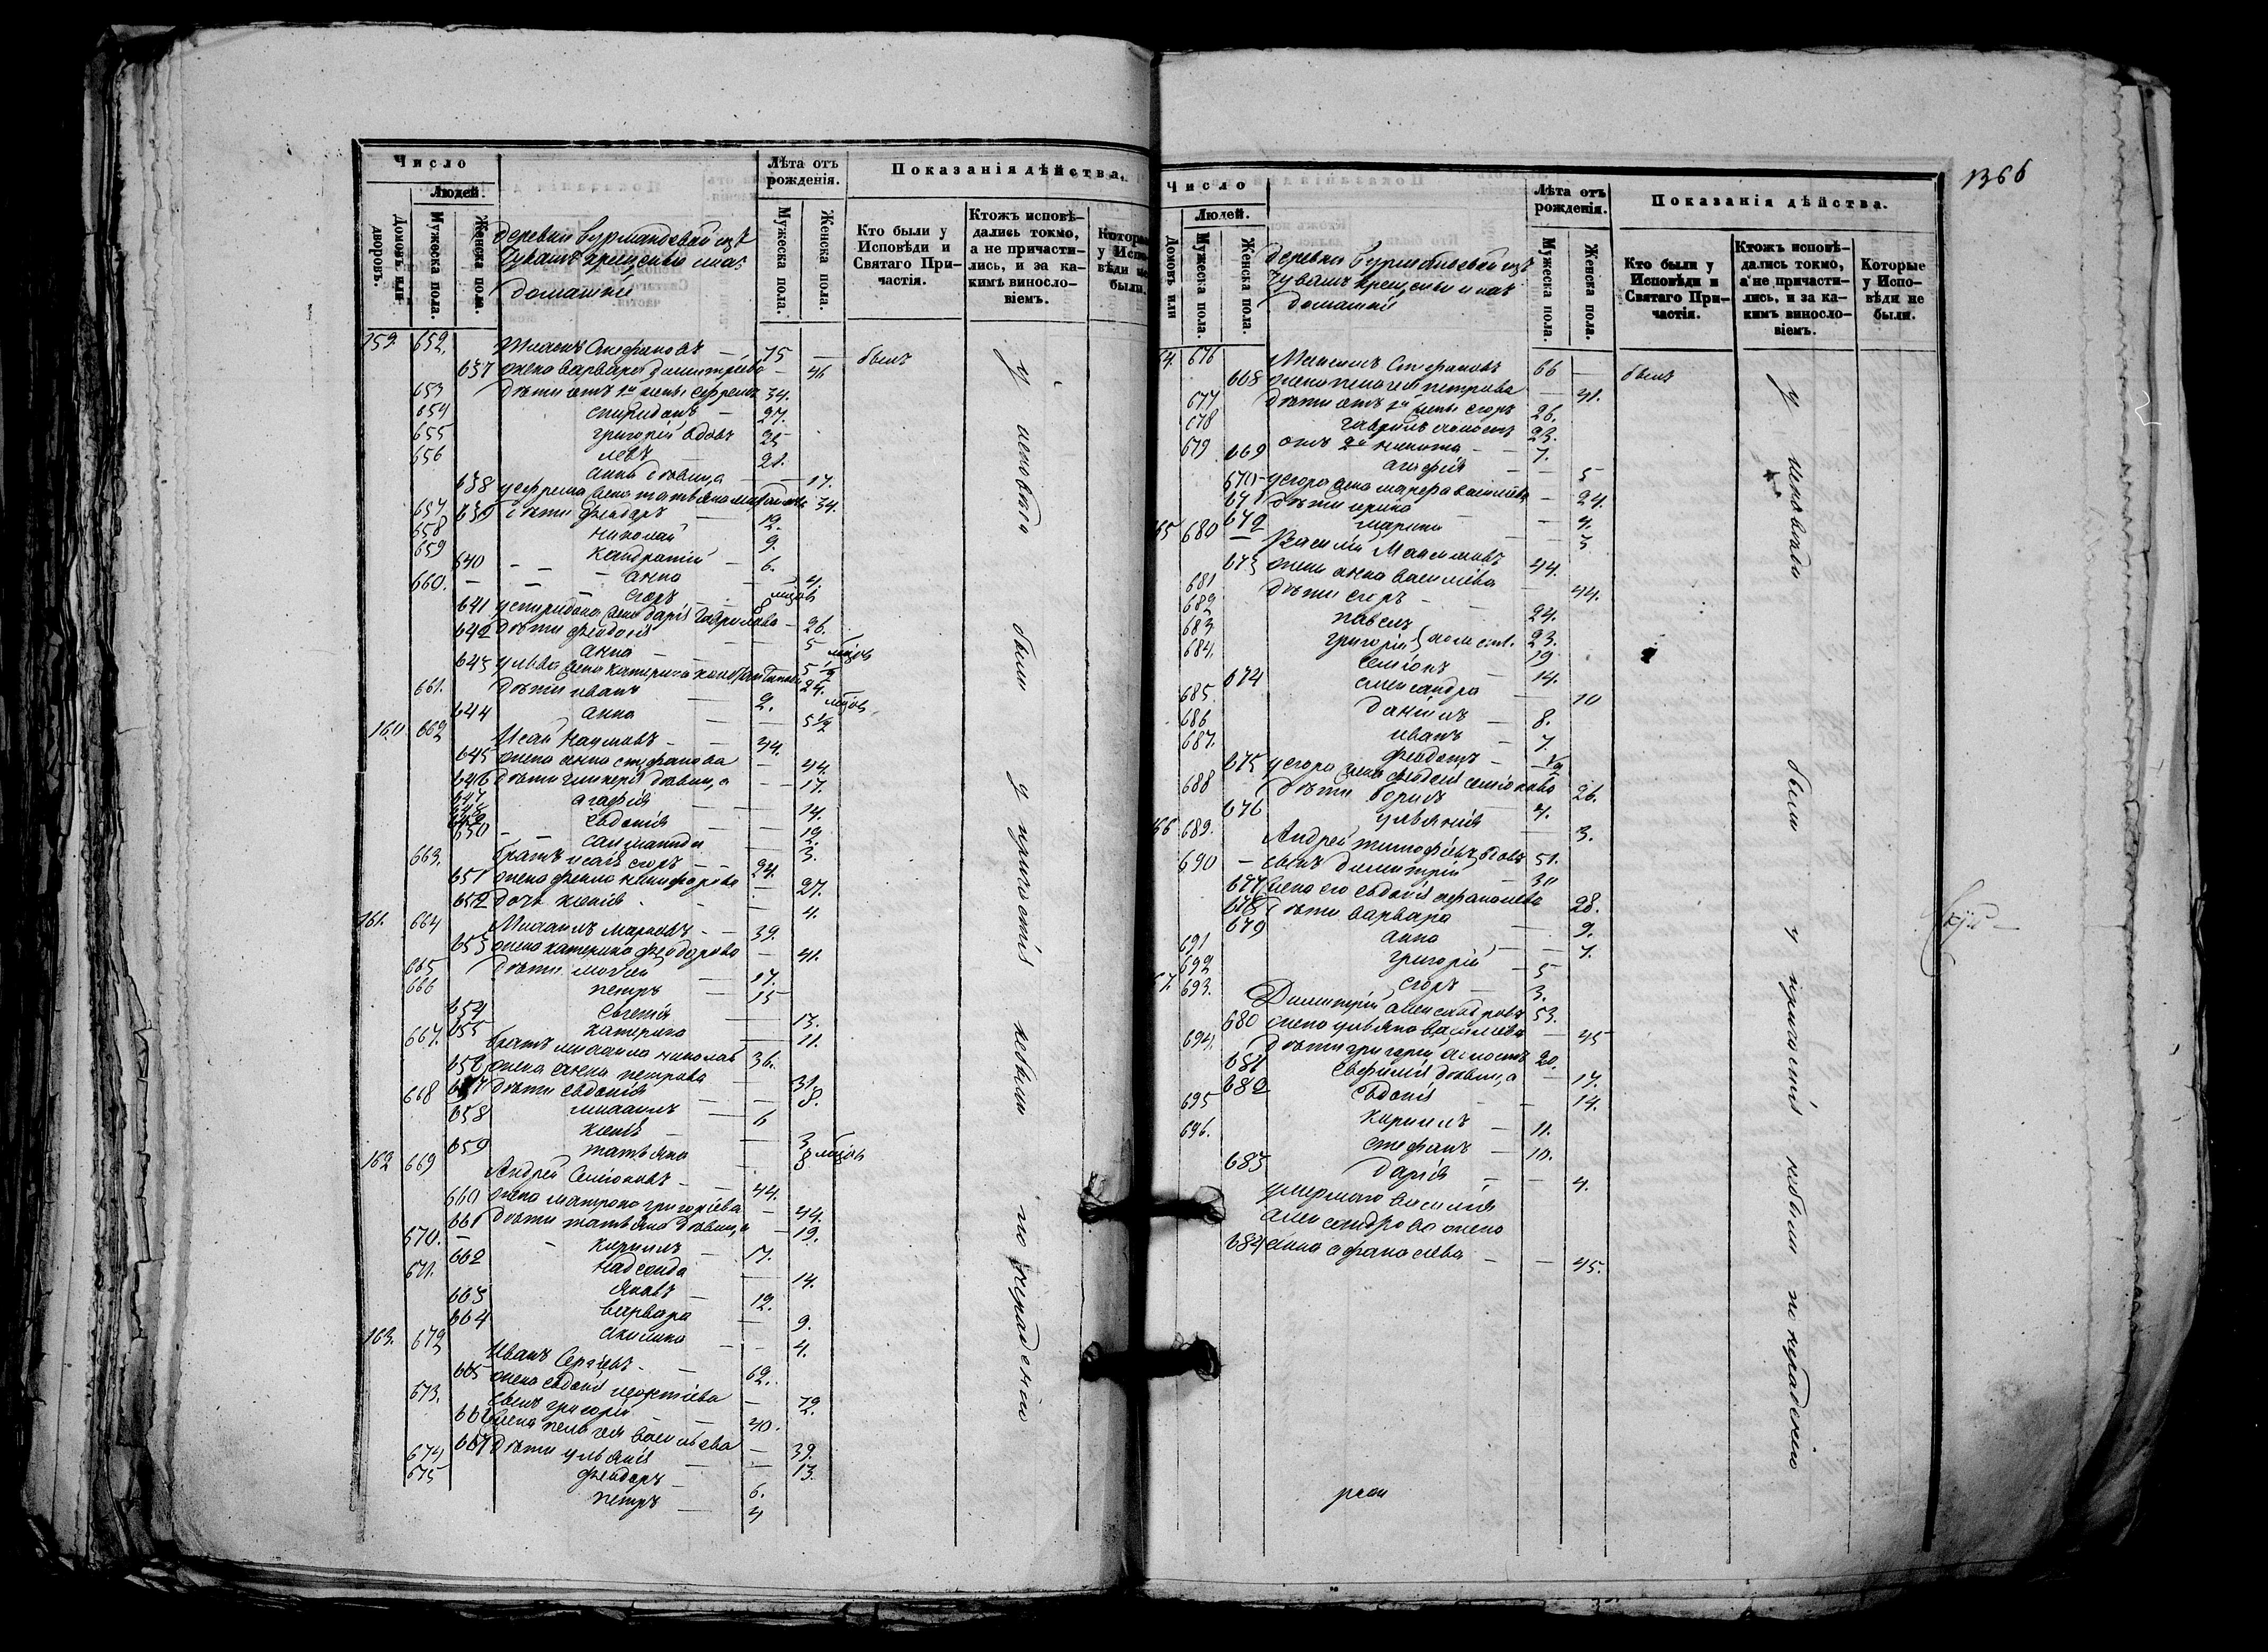 Число
Людей.
Домовъ или дворовъ.
Мужеска пола.
Женска пола.
Лѣта отъ рожденія.
Мужеска пола.
Женска пола.
Показанія дѣйства.
Кто были у Исповѣди и Святаго Причастія.
Ктожъ исповѣдались токмо, а не причастились, и за какимъ винословіемъ.
домашни
159. 652. Степановъ — 75 — былъ
637 жена варвара димитріева — 46
653 дѣти отъ 1й жены ефремъ 34.
654 спиридонъ — 27.
655 григорій вдовъ 25
656 левъ — 21.
анна дѣвица — 17.
638 у ефрема жена татьяна 34.
657 639 дѣти феодоръ — 12.
658 николай 9.
659 кандратій — 6.
640 — — анна — 4.
660. — — егоръ — 8 мцовъ
641 у спиридона жена дарія гаврилова — 26.
642 дѣти феодосія — 5
анна — 5½ мцовъ
643 у льва жена катерина 24.
661. дѣти иванъ 2.
644 анна — 5½ мцовъ
160. 662 Исай наумовъ — 44.
645 жена анна стефанова — 44.
646 дѣти гликерія дѣвица — 17.
647 агафія — 14.
648 евдокія — 12.
650 — — 3.
663. братъ исая егоръ — 24.
651 жена фекла никифорова — 27.
652 дочь ксенія — 4.
161. 664 Михаилъ марковъ — 39.
653 жена катерина феодорова — 41.
665 дѣти — 17.
666 петръ — 15
654 евгенія — 13.
655 катерина — 11.
667. братъ михаила николай 36.
656 жена анна петрова — 31.
657 дѣти евдокія — 8.
668 михаилъ — 6
658 ксенія — 3
659 татьяна — 8 мцовъ
162 669 Андрей Семіоновъ — 44.
660 жена матрона григоріева — 44.
661 дѣти татьяна дѣвица — 19.
670. — кирилъ — 17.
662 — 14.
671. яковъ — 12.
663 варвара — 9.
664 акилина — 4.
163. 672 Иванъ Сергѣевъ — 62.
665 жена евдокія — 72.
673. сынъ григорій — 40.
666 жена пелагея васильева — 39.
667 дѣти ульянія — 13.
674 феодоръ — 6.
675 петръ — 4
у исповѣди были у причастія небыли по нерадѣнію
1366
Число
Людей.
Домовъ или
Мужеска пола.
Женска пола.
Лѣта отъ рожденія.
Мужеска пола.
Женска пола.
Показанія дѣйства.
Кто были у Исповѣди и Святаго Причастія.
Ктожъ исповѣдались токмо, а не причастились, и за какимъ винословіемъ.
Которые у Исповѣди не были.
64. 676 Степановъ 66 — былъ
668 жена пелагея петрова — 41.
677 дѣти отъ 1й жены егоръ 26.
678 гаврилъ холостъ 23.
679 отъ 2й никита — 7.
669 агафія — 5
670 у егора жена васильева — 24.
671 дѣти ирина — 4.
672 марина — 3
65 680 Василій Максимовъ 44.
673 жена анна васильева — 44.
681 дѣти егоръ — 24.
682 павелъ 23.
683 григорій холост. 19
684. семіонъ — 14.
674 александра — 10
685. даніилъ — 8.
686 иванъ — 7.
687. феодотъ — ½
675 у егора жена феодосія семіонова 26.
688 дѣти борисъ 4.
676 ульянія — 3.
66 689. Андрей тимофѣевъ вдовъ 51.
690 — сынъ димитрій — 30
677 жена его евдокія афанасьева 28.
678 дѣти варвара — 9.
679 анна — 7.
691 григорій — 5
692 егоръ — 3.
67. 693. Димитрій александровъ 53.
680 жена ульяна васильева — 45
694. дѣти григорій холостъ 20.
681 евфимія дѣвица — 17.
682 евдокія — 14.
695 кирилъ — 11.
696. стефанъ — 10.
683 дарія — 4.
умершаго василія
александрова жена
684 анна афанасьева — 45.
у исповѣди были у причастія небыли по нерадѣнію